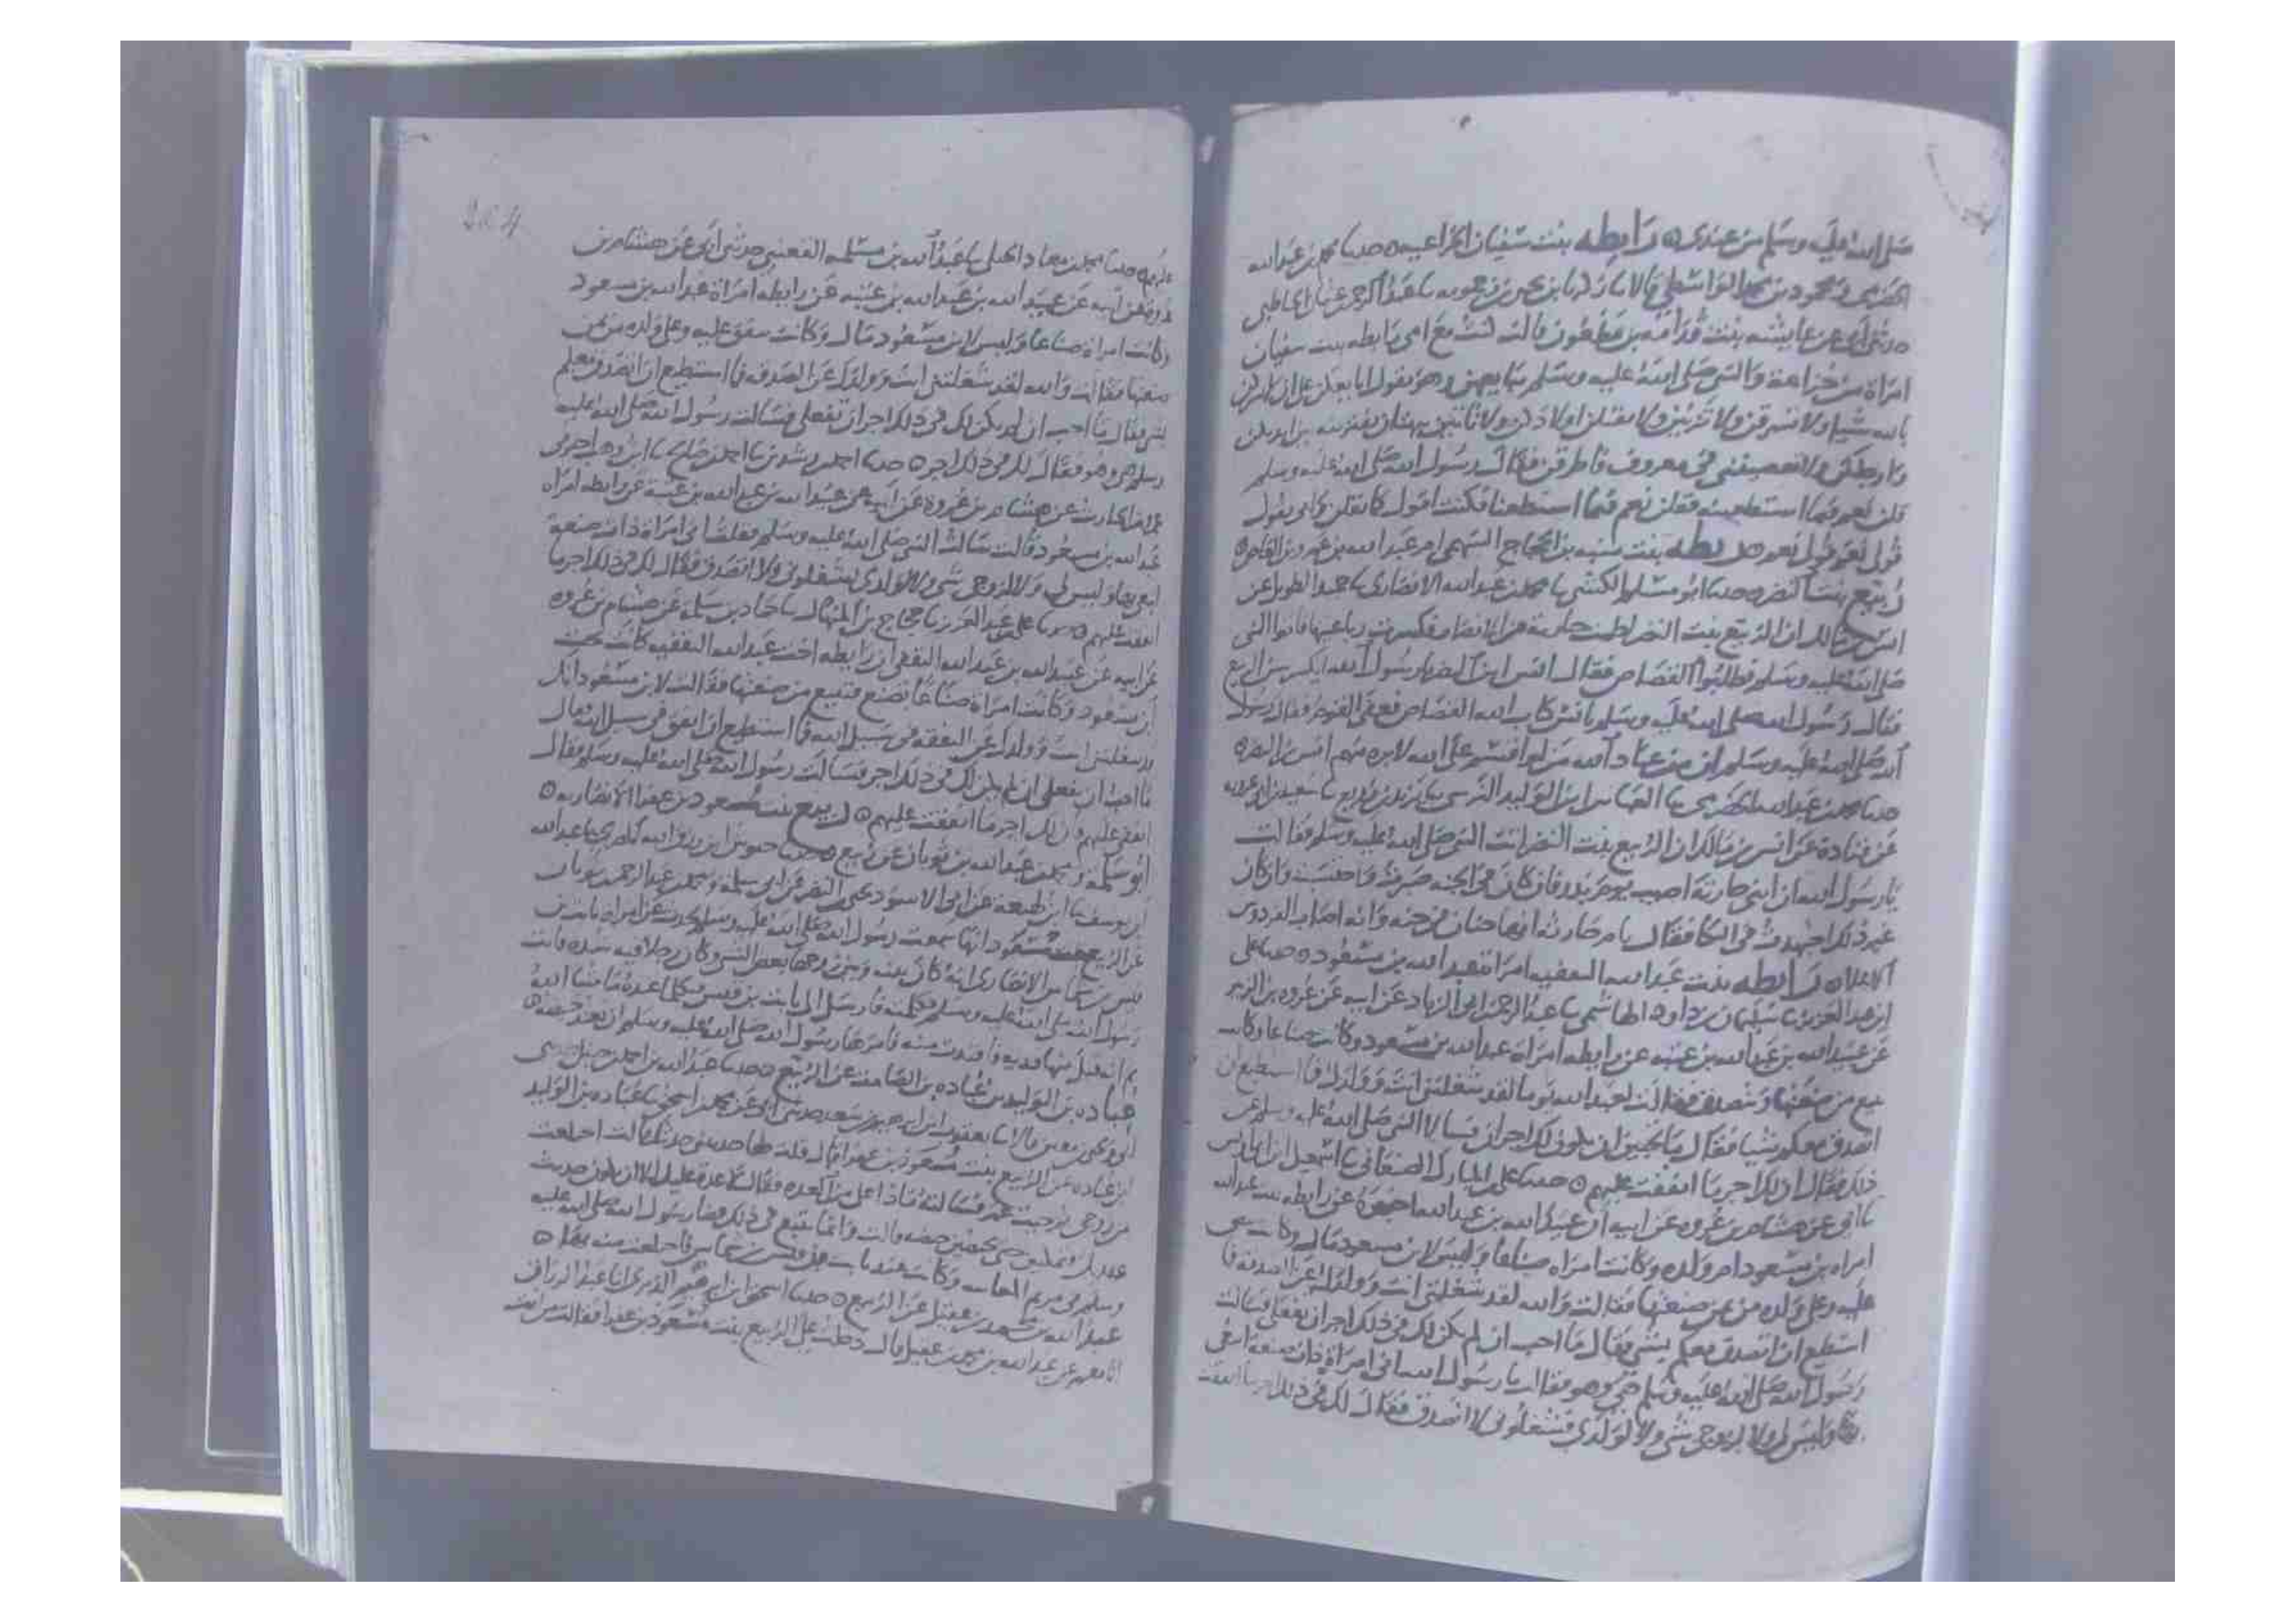 صلى الله عليه وسلم من عندى ه رابطه بنت سفيان الخزاعيه ه حدثنا محمد بن عبدالله
الحضرمى ومحمود بن محمد الواسطى قالا نا زكريا بن يحيى بن زحمويه نا عبد الرحمن بن عثمان الحاطبى
حدثنى ابى عن عايشه بنت قدامه بن مظعون قالت كنت مع امى رابطه بنت سفيان
امراة من خزاعة والنبى صلى الله عليه وسلم يبايعهن وهو يقول ابايعكن على ان لا تشركن
بالله شيا ولا تسرقن ولا تزنين ولا تقتلن اولادكن ولا تاتين ببهتان تفترينه بين ايديكن
وارجلكن ولا تعصيننى فى معروف فاطرقن فقال رسول الله صلى الله عليه وسلم
قلن نعم فيما استطعتن فقلن نعم فيما استطعنا فكنت اقول كما تقلن وامى تقول
قولى نعم فاقول نعم ه ريطه بنت منبه بن الحجاج السهمى ام عبد الله بن عمرو بن العاص ه
ربيع بنت النضر ه حدثنا ابو مسلم الكشى نا محمد بن عبد الله الانصارى نا حميد الطويل عن
انس بن مالك ان الربيع بنت النضر لطمت جارية من الانصار فكسرت رباعيتها فاتوا النبى
صلى الله عليه وسلم فطلبوا القصاص فقال انس ابن النضر يا رسول الله اتكسر سن الربيع
فقال رسول الله صلى الله عليه وسلم يا انس كتاب الله القصاص فعفى القوم فقال رسول
الله صلى الله عليه وسلم ان من عباد الله من لو اقسم على الله لابره منهم انس بن النضر ه
حدثنا محمد بن عبدالله الحضرمى نا العباس ابن الوليد النرسى نا يزيد بن زريع نا سعيد بن ابى عروبه
عن قتادة عن انس بن مالك ان الربيع بنت النضر اتت النبى صلى الله عليه وسلم فقالت
يا رسول الله ان ابنى حارثة اصيب يوم بدر فان كان فى الجنه صبرت واحتسبت وان كان
غير ذلك اجتهدت فى البكا فقال يا ام حارثه انها جنان فى جنه وانه اصاب الفردوس
الاعلى ه رابطه بنت عبد الله الثقفيه امراة عبد الله بن مسعود ه حدثنا على
ابن عبد العزيز نا سليمان بن داود الهاشمى نا عبد الرحمن بن ابى الزناد عن ابيه عن عروه بن الزبير
عن عبيد الله بن عبد الله بن عتبه عن رابطه امراة عبد الله بن مسعود وكانت صناعا وكانت
تبيع من صنعتها وتتصدق فقالت لعبد الله يوما لقد شغلتنى انت وولدك فما استطيع ان
اتصدق معكم بشيا فقال ما احب ان لم يكن لك اجر ان فسالا النبى صلى الله عليه وسلم عن
ذلك فقال ان لك اجر ما انفقت عليهم ه حدثنا على بن المبارك الصنعانى نا اسمعيل ابن ابى اويس
نا ابى عن هشام بن عروه عن ابيه ان عبيد الله بن عبد الله اخبره عن رابطه بنت عبد الله
امراه بن مسعود ام ولده وكانت امراه صناعا وليس لابن مسعود مال وكانت تنفق
عليه وعلى ولده من ثمن صنعتها فقالت والله لقد شغلتنى انت وولدك عن الصدقه فما
استطيع ان اتصدق معكم بشى فقال ما احب ان لم يكن لك فى ذلك اجر ان تفعلى فسالت
رسول الله صلى الله عليه وسلم هى وهو فقالت يا رسول الله انى امراة ذات صنعه ابيع
وليس لى ولا لزوجى شى ولا لولدى فشغلونى لا اتصدق فقال لك فى ذلك اجر ما انفقت
عليهم ه حدثنا محمد بن معاذ الحلبى نا عبد الله بن مسلمه القعنبى حدثنى ابى عن هشام بن
عروه عن ابيه عن عبيد الله بن عبد الله بن عتبه عن رابطه امراة عبد الله بن مسعود
وكانت امراه صناعا وليس لابن مسعود مال وكانت تنفق عليه وعلى ولده من ثمن
صنعتها فقالت والله لقد شغلتنى انت وولدك عن الصدقه فما استطيع ان اتصدق معكم
بشى فقال ما احب ان لم يكن لك فى ذلك اجر ان تفعلى فسالت رسول الله صلى الله عليه
وسلم هى وهو فقال لك فى ذلك اجر ه حدثنا احمد بن رشدين نا احمد بن صالح نا ابن وهب اخبرنى
عمرو بن الحارث عن هشام بن عروة عن ابيه عن عبيد الله بن عبد الله بن عتبة عن رابطه امراه
عبد الله بن مسعود قالت سالت النبى صلى الله عليه وسلم فقلت انى امراة ذات صنعة
ابيعها وليس لى ولا لزوجى شى ولا لولدى فشغلونى ولا اتصدق فقال لك فى ذلك اجر ما
انفقت عليهم ه حدثنا على بن عبد العزيز نا حجاج بن المنهال نا حماد بن سلمة عن هشام بن عروه
عن ابيه عن عبيد الله بن عبد الله الثقفى ان رابطه اخت عبد الله الثقفيه كانت تحت
ابن مسعود وكانت امراة صناعا تصنع فتبيع من صنعتها فقالت لابن مسعود انك
قد شغلتنى انت وولدك عن النفقه فى سبيل الله فما استطيع ان انفق فى سبيل الله فقال
ما احب ان تفعلى ان لم يكن لك فى ذلك اجر فسالت رسول الله صلى الله عليه وسلم فقال
انفقى عليهم فان لك اجر ما انفقت عليهم ه ربيع بنت معوذ بن عفرا الانصاريه ه
ابو سلمة ومحمد بن عبد الله بن ثوبان عن ربيع ه حدثنا حبوش ابن رزق الله المصرى نا عبد الله
ابن يوسف نا ابن لهيعه عن ابى الاسود عن ابى سلمة ومحمد بن عبد الرحمن بن ثوبان
عن الربيع بنت معوذ انها سمعت رسول الله صلى الله عليه وسلم عن امراه ثابت بن
قيس بن شماس الانصارى انه كان بينه وبين زوجها بعض الشى وكان رجلا فيه شده فاتت
رسول الله صلى الله عليه وسلم فكلمته فارسل الى ثابت بن قيس فكلمه ما شا الله
ثم انه قبل منها فديه فافتدت منه فامرها رسول الله صلى الله عليه وسلم ان تعتد حيضه ه
عباده بن الوليد بن عباده بن الصامت عن الربيع ه حدثنا عبد الله بن احمد بن حنبل حدثنى
ابى ويحيى بن معين قالا نا يعقوب بن ابراهيم بن سعد حدثنى ابى عن محمد بن اسحق نا عباده بن الوليد
ابن عباده عن الربيع بنت معوذ بن عفرا قال قلت لها حدثينى حديثك قالت اختلعت
من زوجى ثم جيت عثمن فسالته ماذا على من العده فقال لا عدة عليك الا ان يكون حديث
عهد بك فتمكثين حتى تحيضين حيضه قالت وانما يتبع فى ذلك قضا رسول الله صلى الله عليه
وسلم فى مريم المغاليه وكانت عند ثابت بن قيس بن شماس فاختلعت منه ه
عبد الله بن محمد بن عقيل عن الربيع ه حدثنا اسحق ابن ابرهيم الدبرى انا عبد الرزاق
انا معمر عن عبد الله بن محمد بن عقيل قال دخلت على الربيع بنت معوذ بن عفرا فقالت من انت